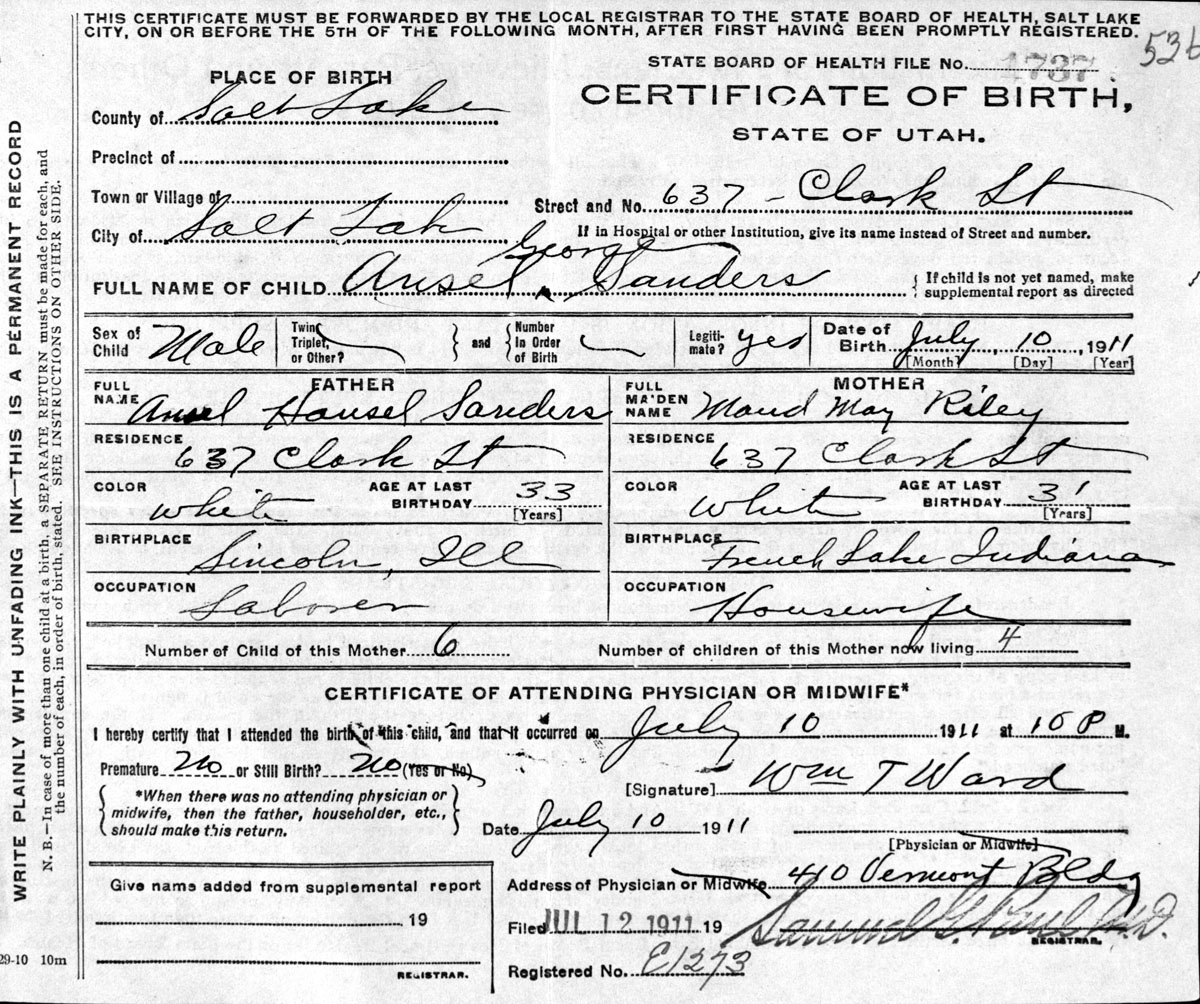 THIS CERTIFICATE MUST BE FORWARDED BY THE LOCAL REGISTRAR TO THE STATE BOARD OF HEALTH, SALT LAKE
CITY, ON OR BEFORE THE 5TH OF THE FOLLOWING MONTH, AFTER FIRST HAVING BEEN PROMPTLY REGISTERED.
536
STATE BOARD OF HEALTH FILE No. 1737
PLACE OF BIRTH
CERTIFICATE OF BIRTH,
STATE OF UTAH.
County of Salt Lake
Precinct of
Town or Village of
Street and No. 637 - Clark St
City of Salt Lak
If in Hospital or other Institution, give its name instead of Street and number.
George
FULL NAME OF CHILD Ansel ^ Sanders
{ If child is not yet named, make
supplemental report as directed
Sex of Child Male
Twin, Triplet, or Other?
} and { Number In Order of Birth
Legiti-mate? yes
Date of Birth July, 10, 1911
[Month] [Day] [Year]
FATHER
FULL NAME Ansel Hansel Sanders
RESIDENCE
637 Clark St
COLOR White
AGE AT LAST BIRTHDAY 33
[Years]
BIRTHPLACE
Lincoln, Ill
OCCUPATION
Laborer
MOTHER
FULL MAIDEN NAME Maud May Riley
RESIDENCE
637 Clark St
COLOR White
AGE AT LAST BIRTHDAY 31
[Years]
BIRTHPLACE
French Lake Indiana
OCCUPATION
Housewife
Number of Child of this Mother 6
Number of children of this Mother now living 4
CERTIFICATE OF ATTENDING PHYSICIAN OR MIDWIFE*
I hereby certify that I attended the birth of this child, and that it occurred on July 10 1911 at 10 P M.
Premature No or Still Birth? No (Yes or No)
[Signature] Wm T Ward
{ *When there was no attending physician or
midwife, then the father, householder, etc.,
should make this return. }
Date July 10 1911
[Physician or Midwife]
Give name added from supplemental report
19
REGISTRAR.
Address of Physician or Midwife 410 Vermont Bldg
Filed JUL 12 1911 19
Samuel G. Paul M.D.
REGISTRAR.
Registered No. E1273
29-10 10m
WRITE PLAINLY WITH UNFADING INK—THIS IS A PERMANENT RECORD
N. B.—In case of more than one child at a birth, a SEPARATE RETURN must be made for each, and
the number of each, in order of birth, stated. SEE INSTRUCTIONS ON OTHER SIDE.